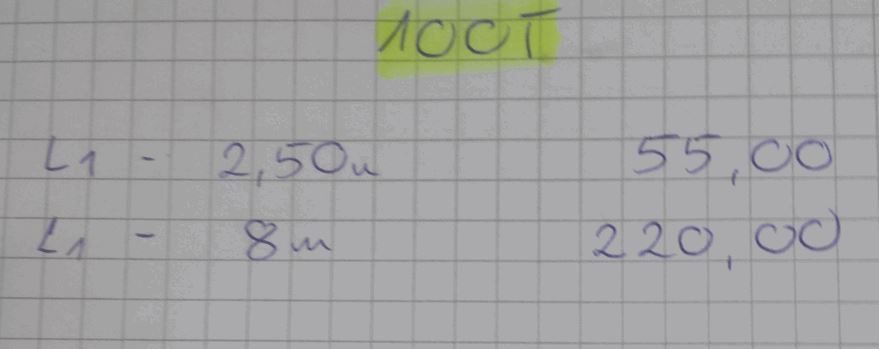 100T
L1 - 2,50m 55,00
L1 - 8m 220,00